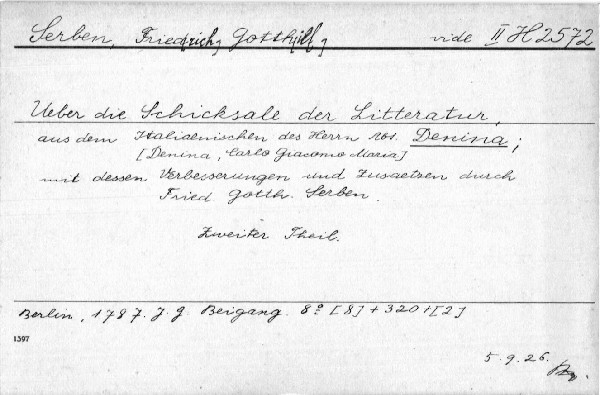 Serben, Fried[rich] Gotth[ilf] vide II H 2572
Ueber die Schicksale der Litteratur,
aus dem Italiaenischen des Herrn Abt. Denina;
[Denina, Carlo Giacomo Maria]
mit dessen Verbesserungen und Zusaetzen durch
Fried Gotth. Serben.
Zweiter Theil.
Berlin, 1787. J. G. Beigang. 8º [8]+320+[2]
1397
5.9.26.